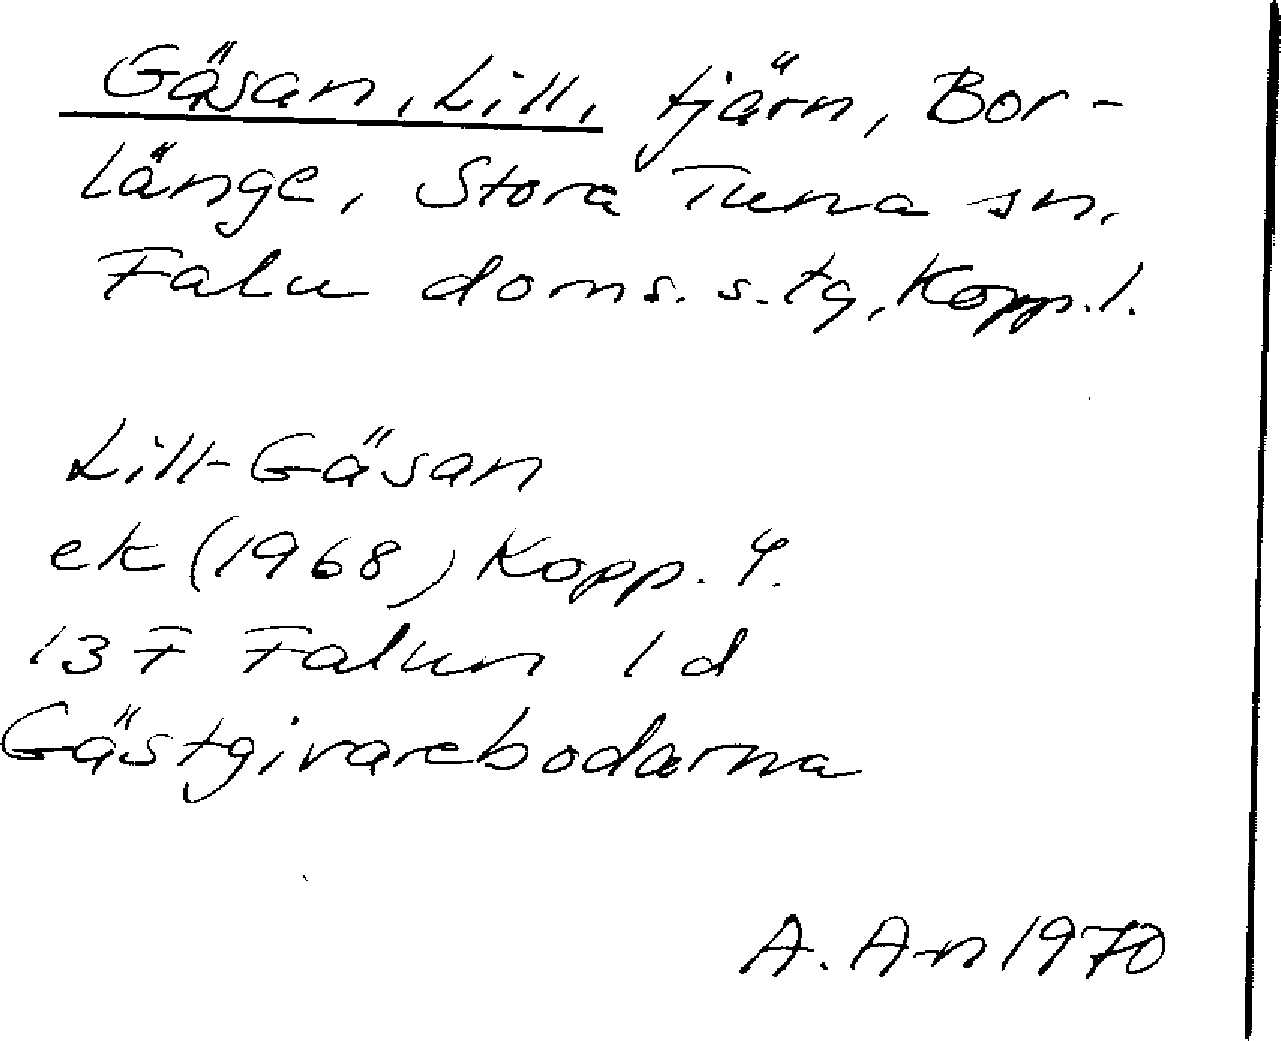 Gäsan, Lill, tjärn, Bor-
länge, Stora Tuna sn.
Falu doms. s. tg, Kopp. l.
Lill-Gäsan
ek (1968) Kopp. 4.
13 F Falun 1 d
Gästgivarebodarna
A. A-n 1970